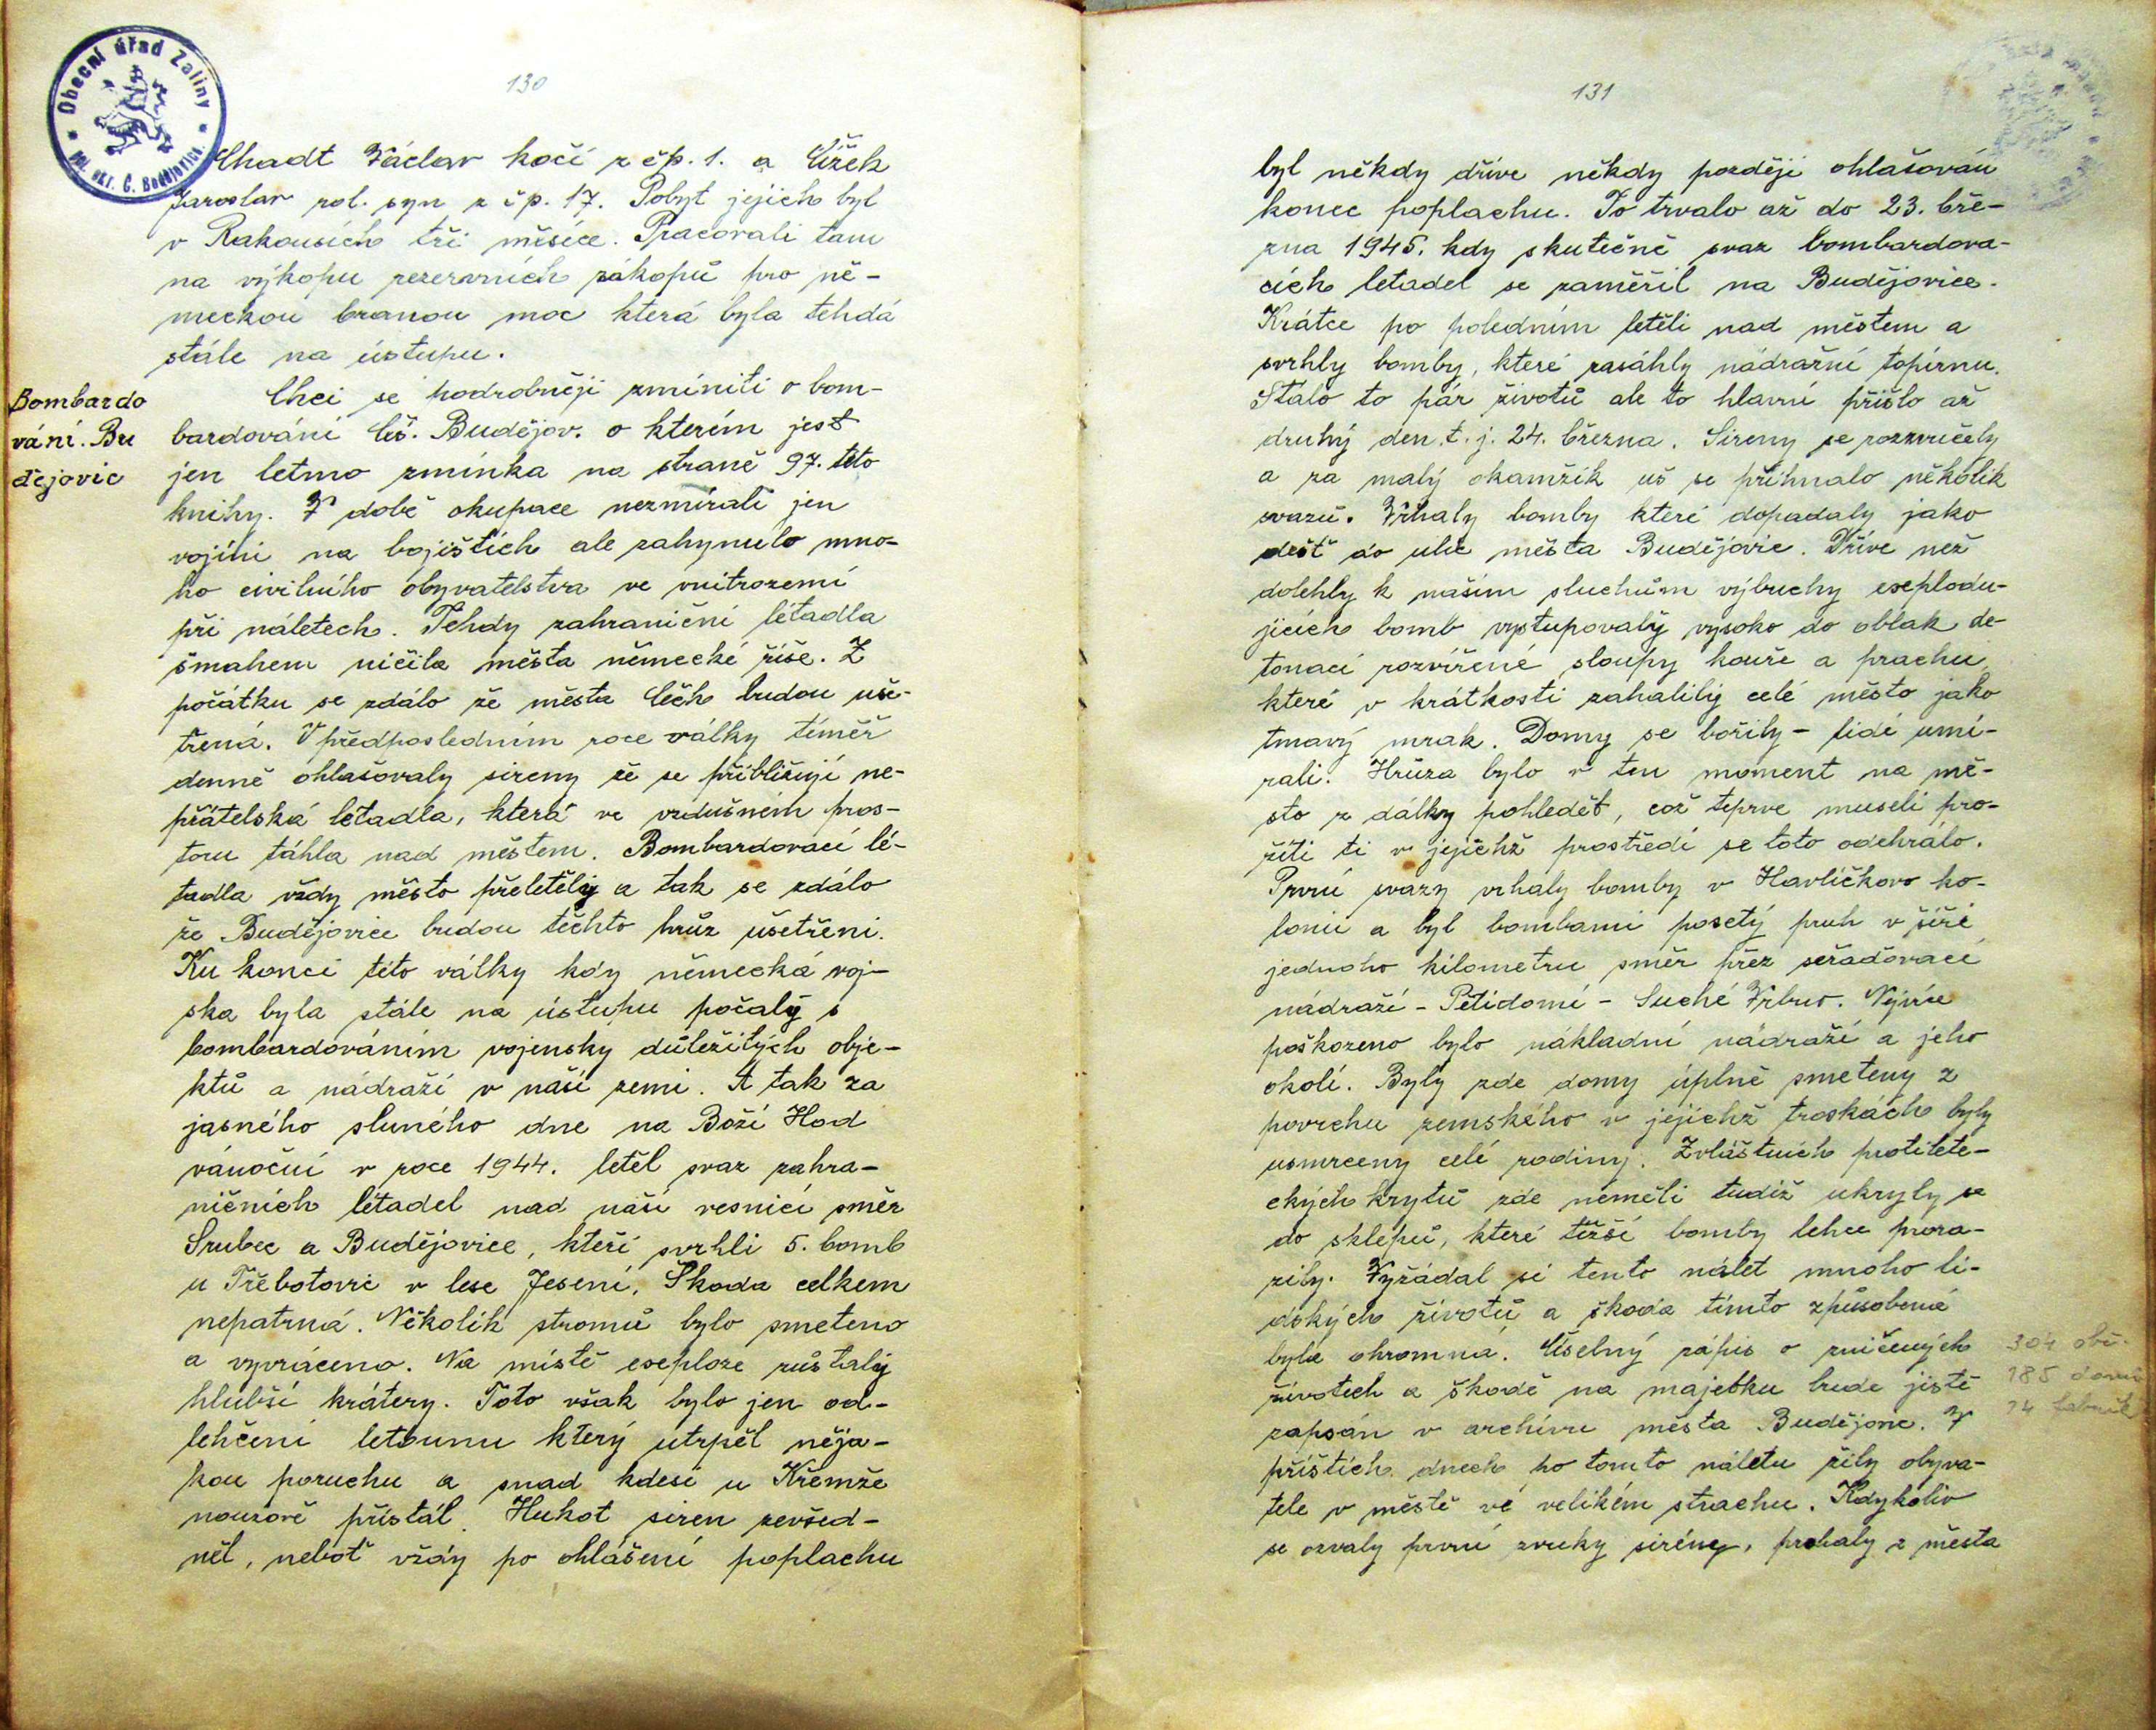 Obecní úřad Zaliny
pol. okr. Č. Budějovice.
130
Chadt Václav kočí z čp. 1. a Čížek
Jaroslav rol. syn z čp. 17. Pobyt jejich byl
v Rakousích tři měsíce. Pracovali tam
na výkopu rezervních zákopů pro ně-
meckou branou moc která byla tehdá
stále na ústupu.
Bombardo
vání. Bu
dějovic
Chci se podrobněji zmíniti o bom-
bardování Čes. Budějov. o kterém jest
jen letmo zmínka na straně 97. této
knihy. V době okupace nezmírali jen
vojíni na bojištích ale zahynulo mno-
ho civilního obyvatelstva ve vnitrozemí
při náletech. Tehdy zahraniční létadla
šmahem ničila města německé říše. Z
počátku se zdálo že města Čech budou uše-
třená. V předposledním roce války téměř
denně ohlašovaly sireny že se přibližují ne-
přátelská létadla, která ve vzdušném pros-
toru táhla nad městem. Bombardovací lé-
tadla vždy město přeletěly a tak se zdálo
že Budějovice budou těchto hrůz ušetřeni.
Ku konci této války kdy německá voj-
ska byla stále na ústupu počaly s
bombardováním vojensky důležitých obje-
ktů a nádraží v naší zemi. A tak za
jasného sluného dne na Boží Hod
vánoční v roce 1944. letěl svaz zahra-
ničních létadel nad naší vesnicí směr
Srubec a Budějovice, kteří svrhli 5. bomb
u Třebotovic v lese Jesení. Škoda celkem
nepatrná. Několik stromů bylo smeteno
a vyvráceno. Na místě exeploze zůstaly
hlubší krátery. Toto však bylo jen od-
lehčení letounu který utrpěl něja-
kou poruchu a snad kdesi u Křemže
nouzově přistál. Hukot siren zevšed-
něl, neboť vždy po ohlášení poplachu
131
byl někdy dříve někdy později ohlašován
konec poplachu. To trvalo až do 23. bře-
zna 1945. kdy skutečně svaz bombardova-
cích letadel se zaměřil na Budějovice.
Krátce po poledním letěli nad městem a
svrhly bomby, které zasáhly nádražní topírnu.
Stálo to pár životů ale to hlavní přišlo až
druhý den t. j. 24. března. Sireny se rozzvučely
a za malý okamžik už se přihnalo několik
svazů. Vrhaly bomby které dopadaly jako
dešť do ulic města Budějovic. Dříve než
dolehly k naším sluchům výbuchy exeplodu-
jících bomb vystupovaly vysoko do oblak de-
tonací rozvířené sloupy kouře a prachu
které v krátkosti zahalily celé město jako
tmavý mrak. Domy se bořily - lidé umí-
rali. Hrůza bylo v ten moment na mě-
sto z dálky pohledět, což teprve museli pro-
žíti ti v jejichž prostředí se toto odehrálo.
První svazy vrhaly bomby v Havlíčkovo ko-
lonii a byl bombami posetý pruh v šíři
jednoho kilometru směr přez seřaďovací
nádraží - Pětidomí - Suché Vrbno. Nejvíce
poškozeno bylo nákladní nádraží a jeho
okolí. Byly zde domy úplně smeteny z
povrchu zemského v jejichž troskách byly
usmrceny celé rodiny. Zvláštních protilete-
ckých krytů zde neměli tudíž ukryly se
do sklepů, které těžší bomby lehce prora-
zily. Vyžádal si tento nálet mnoho li-
dských životů a škoda tímto způsobená
byla ohromná. Číselný zápis o zničených
životech a škodě na majetku bude jistě
zapsán v archívu města Budějovic. V
příštích dnech po tomto náletu žily obyva-
tele v městě ve velikém strachu. Kdykoliv
se ozvaly první zvuky sirény, prchaly z města
304 obě-
185 domů
14 továren